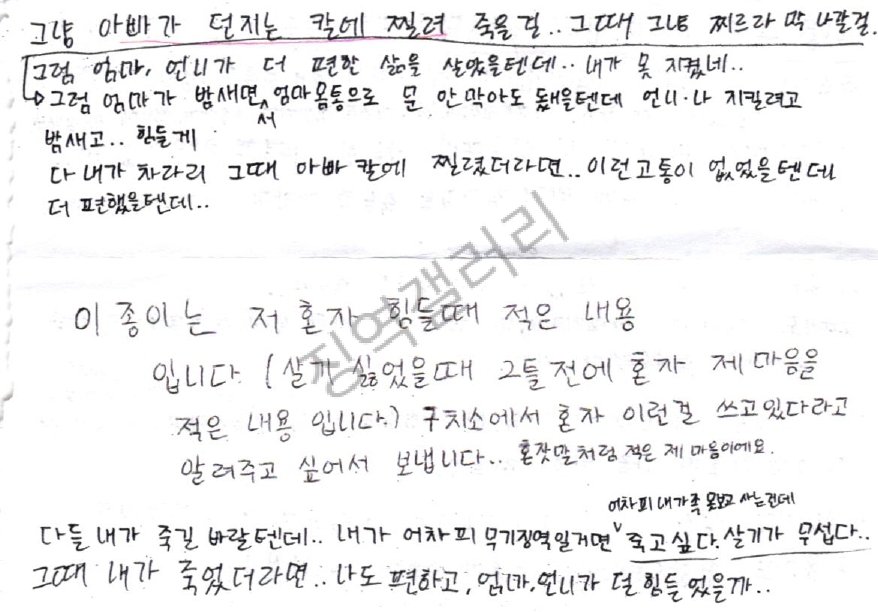 그냥 아빠가 던지는 칼에 찔려 죽을걸.. 그때 그냥 찌르라 막 나갈걸.
그럼 엄마, 언니가 더 편한 삶을 살았을텐데.. 내가 못 지켰네..
그럼 엄마가 밤새면서 엄마몸통으로 문 안막아도 됐을텐데 언니·나 지킬려고
밤새고.. 힘들게
다 내가 차라리 그때 아빠 칼에 찔렸더라면.. 이런고통이 없었을텐데
더 편했을텐데..
징역갤러리
이 종이는 저 혼자 힘들때 적은 내용
입니다 (살기 싫었을때 2틀전에 혼자 제 마음을
적은 내용 입니다.) 구치소에서 혼자 이런걸 쓰고있다라고
알려주고 싶어서 보냅니다.. 혼잣말처럼 적은 제 마음이에요.
어차피 내가족 못보고 사는건데
다들 내가 죽길 바랄텐데.. 내가 어차피 무기징역일거면 죽고싶다. 살기가 무섭다..
그때 내가 죽었더라면.. 나도 편하고, 엄마, 언니가 덜 힘들었을까..